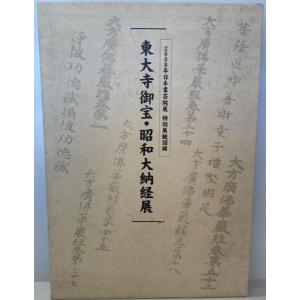 菩薩道時善財童子禮堅固足
大方廣佛華嚴經卷第五十二
大方廣佛華嚴經卷第十八
大方廣佛華嚴經卷第二十四
2008年日本書芸院展 特別展観図録
東大寺御宝・昭和大納経展
大方廣佛華嚴經卷第四十五
淨彼功德誠攝彼功德誠
大方廣佛華嚴經卷第三十七